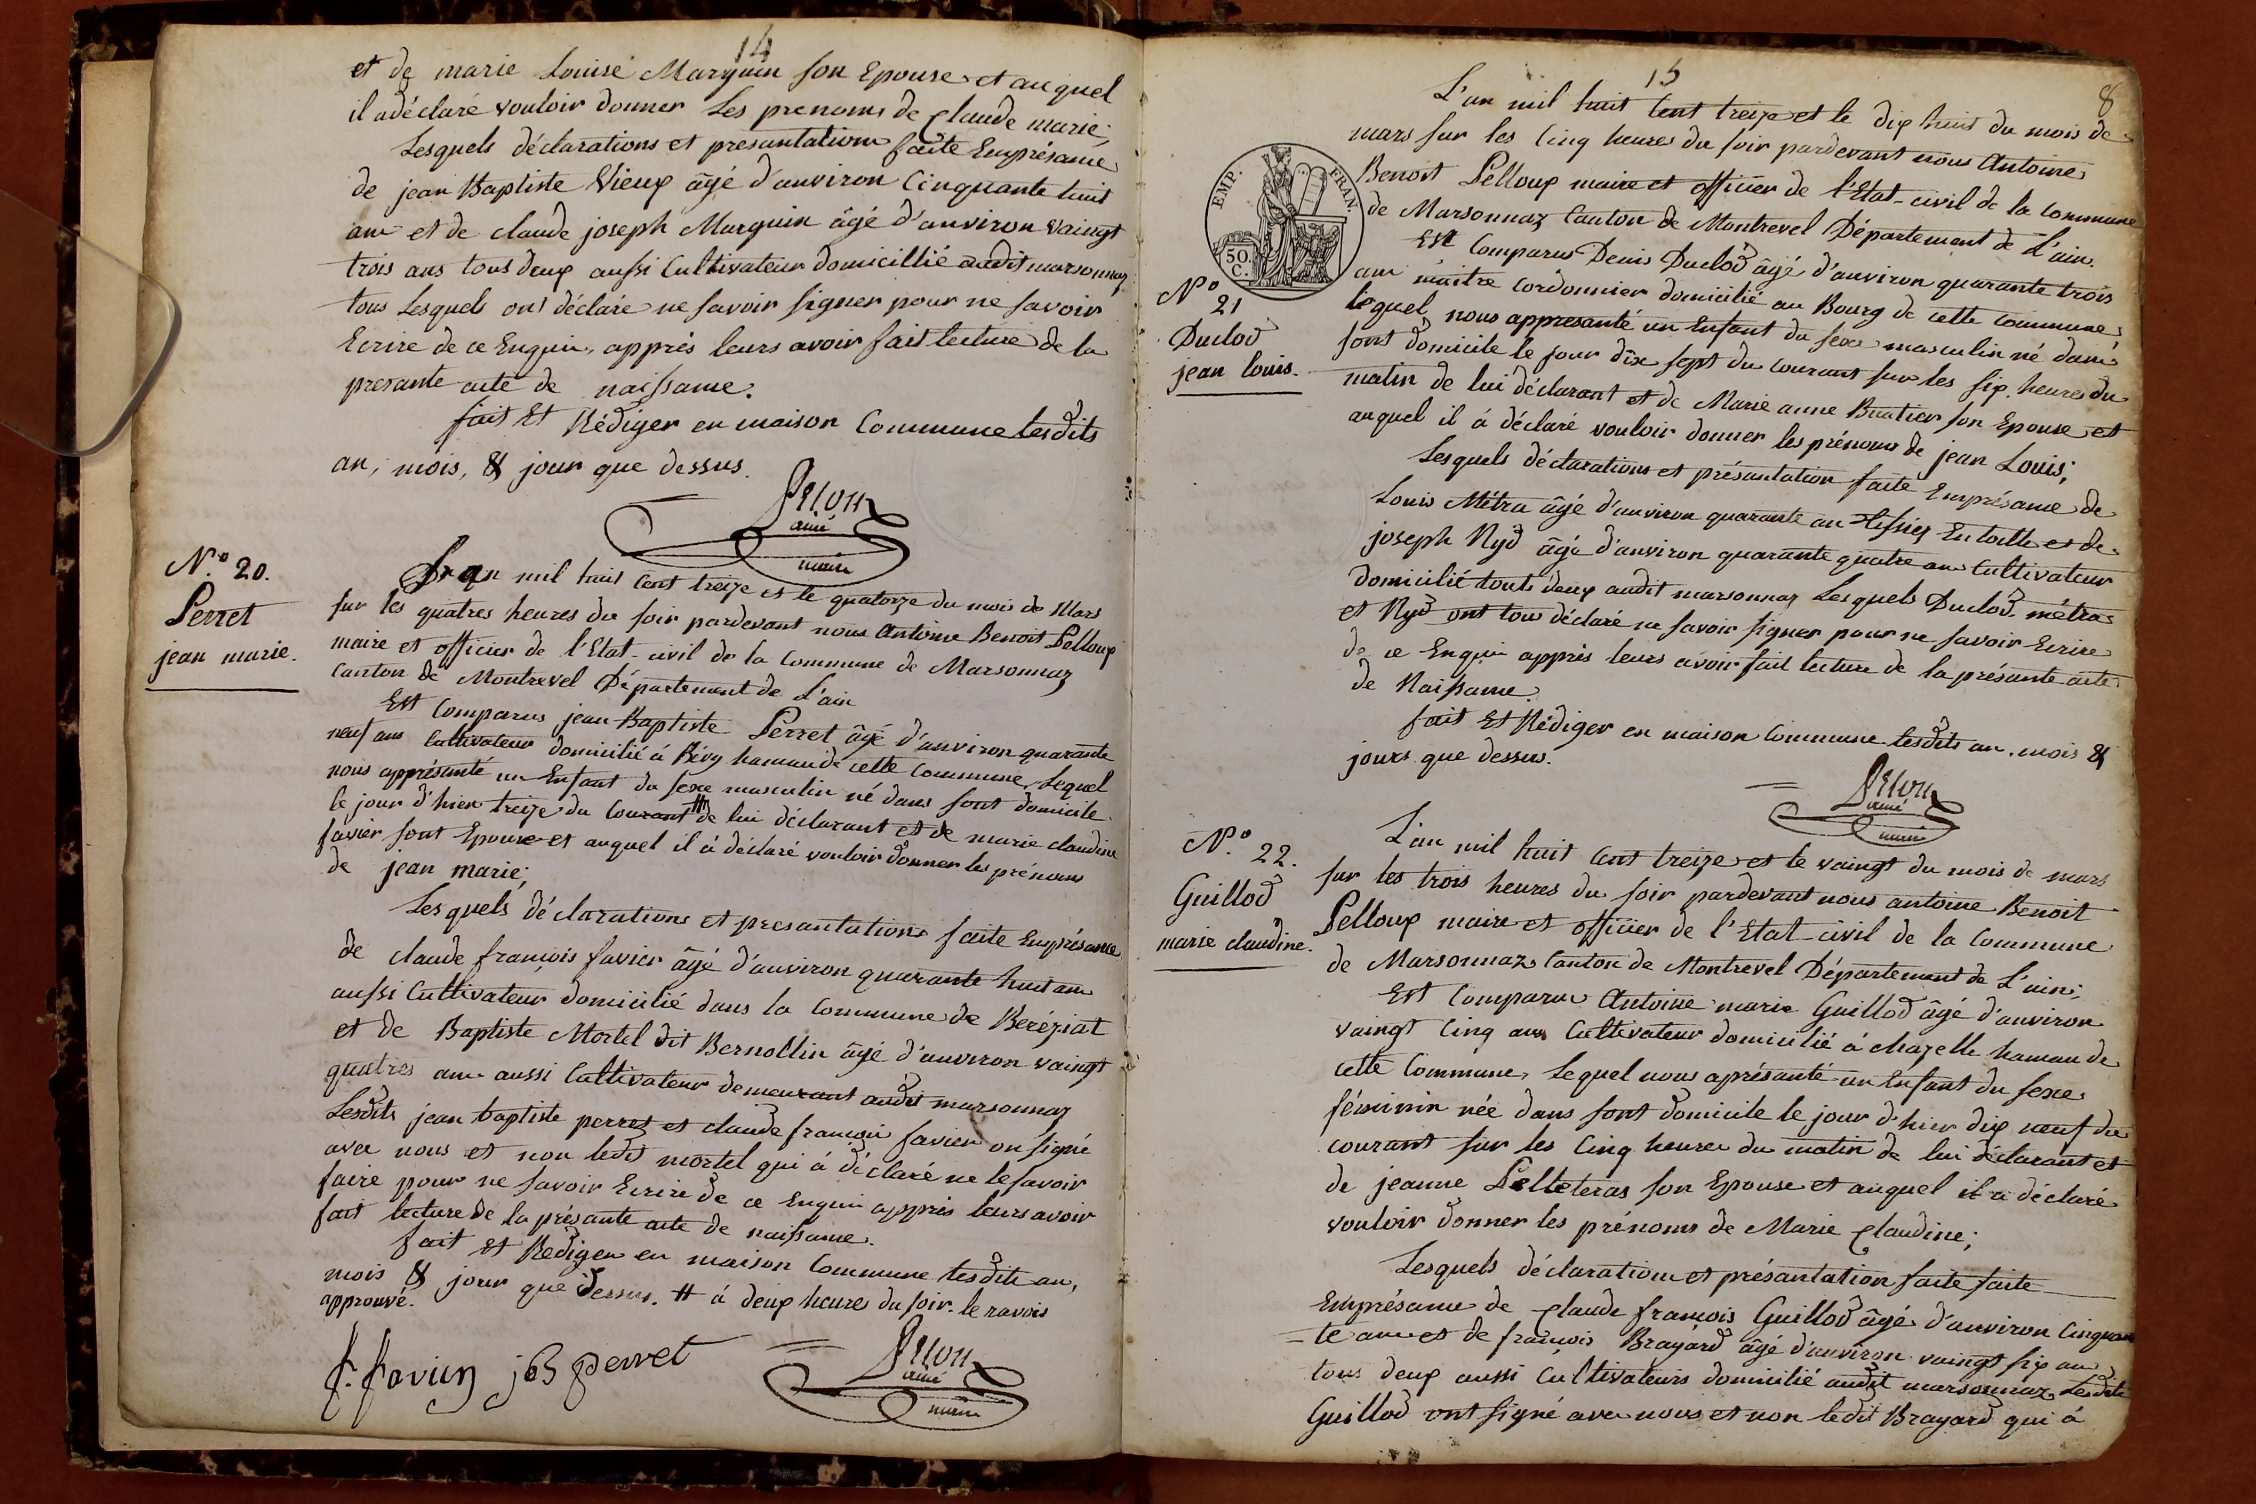 14
et de marie Louise Marguin son Epouse et auquel
il a déclaré vouloir donner Les prenoms de Claude marie;
Lesquels déclarations et presantations faite Emprésame
de jean Baptiste Vieux âgé d'anviron Cinquante huit
ans et de claude joseph Marguin âgé d'anviron vaingt
trois ans tous deux aussi Cultivateur domicillié audit marsonnaz
tous Lesquels ont déclaré ne savoir signer pour ne savoir
Ecrire de ce Enquis, apprés leurs avoir fait lecture de la
presante acte de naissame.
fait Et Rédiger en maison Commune lesdits
an, mois, & jour que dessus.
ainé
maire
N.° 20.
Perret
jean marie.
L'an mil huit Cent treize et le quatorze du mois de Mars
sur les quatres heures du soir pardevant nous Antoine Benoit Pelloux
maire et officier de l'Etat-civil de la Commune de Marsonnaz
Canton de Montrevel Département de L'ain
Est Comparus jean Baptiste Perret âgé d'anviron quarante
neuf ans Cultivateur domicilié á Bévy hamau de cette Commune, Lequel
nous apprésenté un Enfant du sexe masculin né dans sont domicile
le jour d'hier treize du Courant # de lui déclarant et de marie claudine
favier sont Epouse et auquel il á déclaré vouloir donner les prénoms
de jean marie;
Lesquels déclarations et presantations faite Emprésame
de claude françois favier âgé d'anviron quarante huit ans
aussi Cultivateur domicilié dans la Commune de Beréziat
et de Baptiste Mortel dit Bernollin âgé d'anviron vaingt
quatres ans aussi Cultivateur demeurant audit marsonnaz
Lesdits jean baptiste perret et claude françois favier on signé
avec nous et non ledit mortel qui á déclaré ne le savoir
faire pour ne savoir Ecrire de ce Enquis apprés leurs avoir
fait lecture de la présante acte de naissame.
fait Et Rediger en maison Commune lesdits an,
mois & jour que dessus. # á deux heures du soir. le ravois
approuvé.
f. favier jB perret
ainé
maire
15
8
EMP. FRAN.
50.
C.
N.°
21
Duclod
jean louis.
L'an mil huit Cent treize et le dix huit du mois de
mars sur les Cinq heures du soir pardevant nous Antoine
Benoit Pelloux maire et officier de l'Etat-civil de la Commune
de Marsonnaz Canton de Montrevel Département de L'ain.
Est Comparus Denis Duclod âgé d'anviron quarante trois
ans maitre Cordonnier domicilié au Bourg de cette Commune
lequel nous appresanté un Enfant du sexe masculin né dans
sont domicile le jour dix sept du courant sur les six heures du
matin de lui déclarant et de Marie anne Buatier son Epouse et
auquel il á déclaré vouloir donner les prénoms de jean Louis;
Lesquels déclarations et présantation faite Emprésame de
Louis Métra âgé d'anviron quarante an tissier En toille et de
joseph Nyd âgé d'anviron quarante quatre ans Cultivateur
domicilié touts deux audit marsonnaz Lesquels Duclod, métra
et Nyd ont tous déclaré ne savoir signer pour ne savoir Ecrire
de ce Enquis apprés leurs avoir fait lecture de la présante acte
de Naissame
fait Et Rédiger en maison Commune lesdits an, mois &
jours que dessus.
ainé
maire
N.° 22.
Guillod
marie claudine.
L'an mil huit Cent treize et le vaingt du mois de mars
sur les trois heures du soir pardevant nous antoine Benoit
Pelloux maire et officier de l'Etat-civil de la Commune
de Marsonnaz Canton de Montrevel Département de L'ain;
Est Comparus Antoine marie Guillod âgé d'anviron
vaingt Cinq ans Cultivateur domicilié á chazelle hamau de
cette Commune, Lequel nous aprésanté un Enfant du sexe
féminin née dans sont domicile le jour d'hier dix neuf du
courant sur les Cinq heures du matin de lui déclarant et
de jeanne Pelletéras son Epouse et auquel il a déclaré
vouloir donner les prénoms de Marie Claudine;
Lesquels déclaration et présantation faite faite
Emprésame de Claude françois Guillod âgé d'anviron Cinquan
-te ans et de françois Brayard âgé d'anviron vaingt six ans
tous deux aussi Cultivateurs domicilié audit marsonnaz Lesdits
Guillod ont signé avec nous et non ledit Brayard qui á